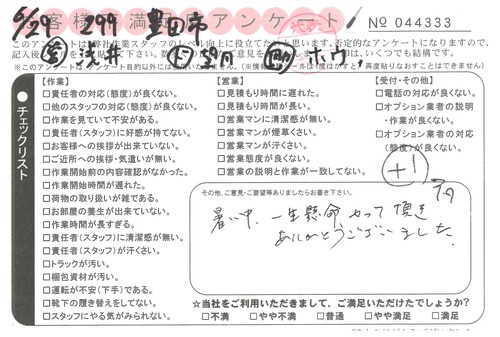 お客様満足度アンケート
No 044333
6/29 299 豊田市
浅井
このアンケートは弊社作業スタッフのレベル向上に役立てたいと思います。否定的なアンケートになりますので、
記入後
いくつでも結構です。
※このアンケートは、アンケート目的以外には
一度はがすと、再度貼りなおすことはできません)
チェックリスト
【作業】
□責任者の対応(態度)が良くない。
□他のスタッフの対応(態度)が良くない。
□作業を見ていて不安がある。
□責任者(スタッフ)に好感が持てない。
□お客様への挨拶が出来ていない。
□ご近所への挨拶・気遣いが無い。
□作業開始前の内容確認がなかった。
□作業開始時間が遅れた。
□荷物の取り扱いが雑である。
□お部屋の養生が出来ていない。
□作業時間が長すぎる。
□責任者(スタッフ)に清潔感が無い。
□責任者(スタッフ)が汗くさい。
□トラックが汚い。
□梱包資材が汚い。
□運転が不安(下手)である。
□靴下の履き替えをしてない。
□スタッフにやる気がみられない。
【営業】
□見積もり時間に遅れた。
□見積もり時間が長い。
□営業マンに清潔感が無い。
□営業マンが煙草くさい。
□営業マンが汗くさい。
□営業態度が良くない。
□営業の説明と作業が一致してない。
【受付・その他】
□電話の対応が良くない。
□オプション業者の説明
・作業が良くない。
□オプション業者の対応
(態度)が良くない。
+1
その他、ご意見・ご要望等ありましたらお書き下さい。
暑い中、一生懸命やって頂き
ありがとうございました。
☆当社をご利用いただきまして、ご満足いただけたでしょうか?
□不満 □やや不満 □普通 □やや満足 □満足